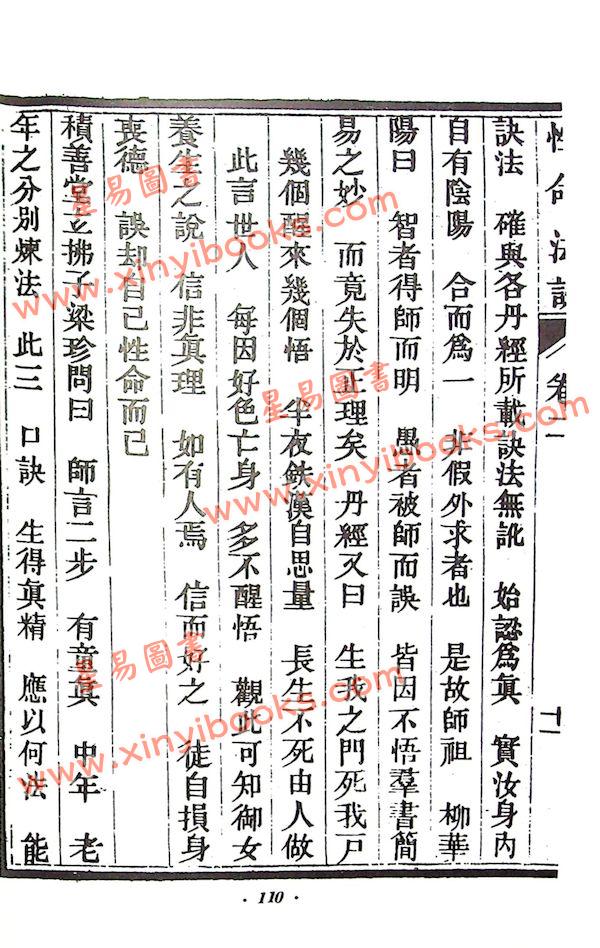 性命法訣 卷二 十一
訣法 確與各丹經所載訣法無訛 始認爲眞 實汝身內
自有陰陽 合而爲一 非假外求者也 是故師祖 柳華
陽曰 智者得師而明 愚者被師而誤 皆因不悟羣書簡
易之妙 而竟失於正理矣 丹經又曰 生我之門死我戶
幾個醒來幾個悟 半夜鉄漢自思量 長生不死由人做
此言世人 每因好色亡身 多不醒悟 觀此可知御女
養生之說 信非眞理 如有人焉 信而好之 徒自損身
喪德 誤却自己性命而已
積善堂玄拂子梁珍問曰 師言二步 有童眞 中年 老
年之分別煉法 此三 口訣 生得眞精 應以何法 能
· 110 ·
星易圖書
www.xinyibooks.com
星易圖書
www.xinyibooks.com
星易圖書
www.xinyibooks.com